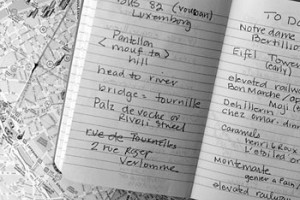 BUS 82 (vauban)
Luxemborg
Pantllon
( mouf ta )
hill
head to river
bridge = tournille
Palz de voche or
Rivoli Street
rue de Tournelles
2 rue Roger
Verlomme
TO D
Notre dame
Bertillio
Eiffel Tower
(early)
elevated railwa
Bon Marche o
Dehillerin Moji (
chez omar-dinn
Caramels
Henri & Roux
etoile d or
Montemarte
elevated railway